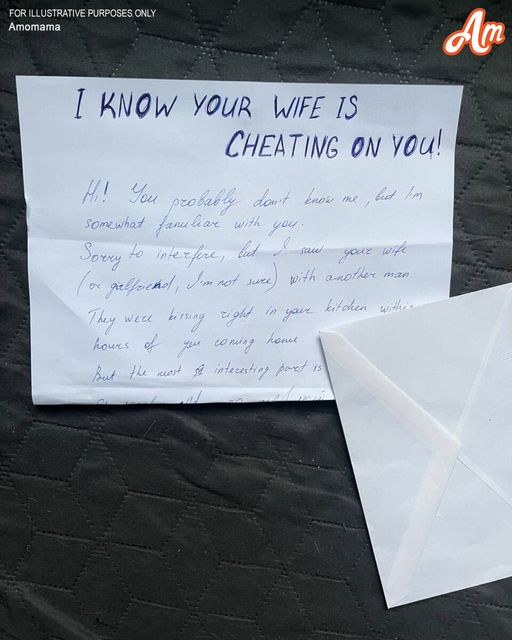 FOR ILLUSTRATIVE PURPOSES ONLY
Amomama
Am
I KNOW YOUR WIFE IS
CHEATING ON YOU!
Hi! You probably don't know me, but I'm
somewhat familiar with you.
Sorry to interfire, but I saw your wife
(or girlfriend, I'm not sure) with another man
They were kissing right in your kitchen within
hours of you coming home
But the most interesting part is